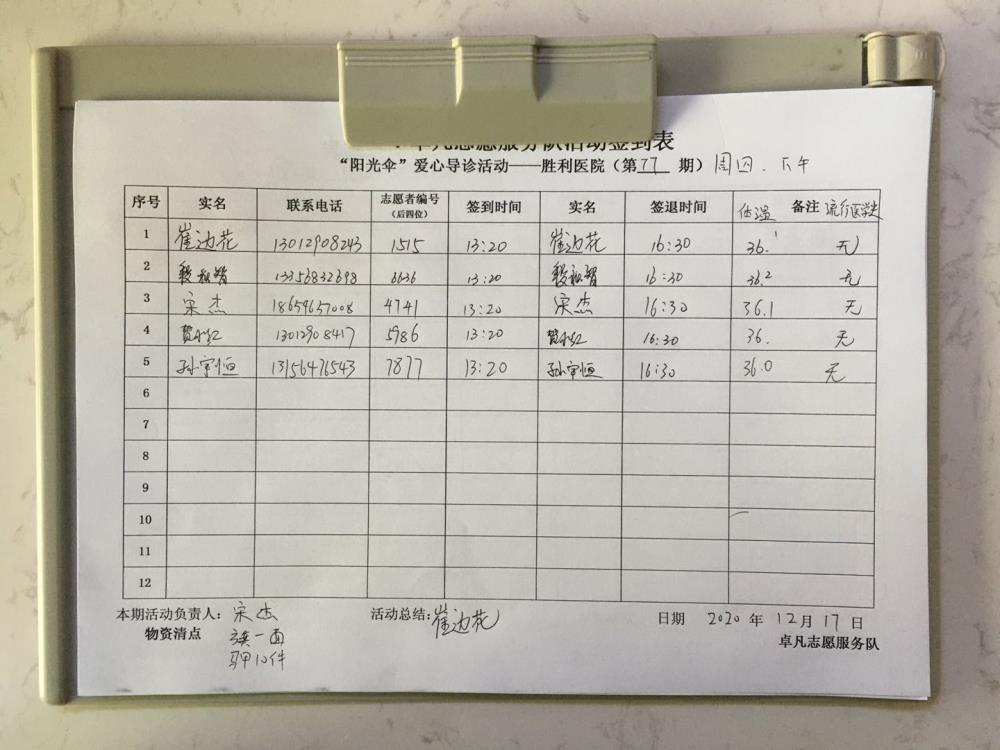 卓凡志愿服务队活动签到表
“阳光伞”爱心导诊活动——胜利医院（第 77 期）周四.下午
序号 实名 联系电话 志愿者编号（后四位） 签到时间 实名 签退时间 体温 备注 流行医学史
1 崔边花 13012908243 1515 13:20 崔边花 16:30 36.1 无
2 13356832698 6636 13:20 16:30 36.2 无
3 宋杰 18654657008 4741 13:20 宋杰 16:30 36.1 无
4 13012908417 5986 13:20 16:30 36. 无
5 孙宇恒 13156476543 7877 13:20 孙宇恒 16:30 36.0 无
6
7
8
9
10
11
12
本期活动负责人：宋杰 活动总结：崔边花 日期 2020 年 12 月 17 日
物资清点 旗一面 卓凡志愿服务队
马甲10件